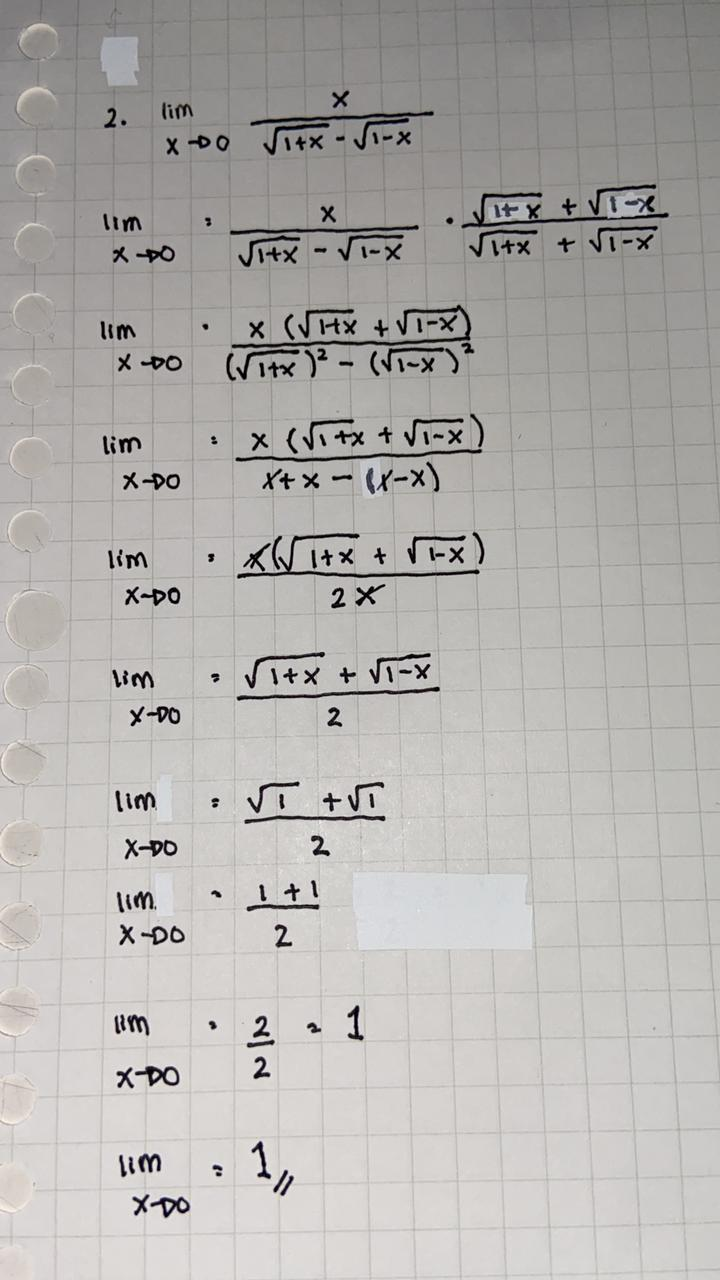 2. lim x→0 x / (√(1+x) - √(1-x))
lim x→0 = x / (√(1+x) - √(1-x)) · (√(1+x) + √(1-x)) / (√(1+x) + √(1-x))
lim x→0 = x (√(1+x) + √(1-x)) / ((√(1+x))² - (√(1-x))²)
lim x→0 = x (√(1+x) + √(1-x)) / (x+x - (x-x))
lim x→0 = x(√(1+x) + √(1-x)) / 2x
lim x→0 = (√(1+x) + √(1-x)) / 2
lim x→0 = (√1 + √1) / 2
lim x→0 = (1+1) / 2
lim x→0 = 2/2 = 1
lim x→0 = 1,,